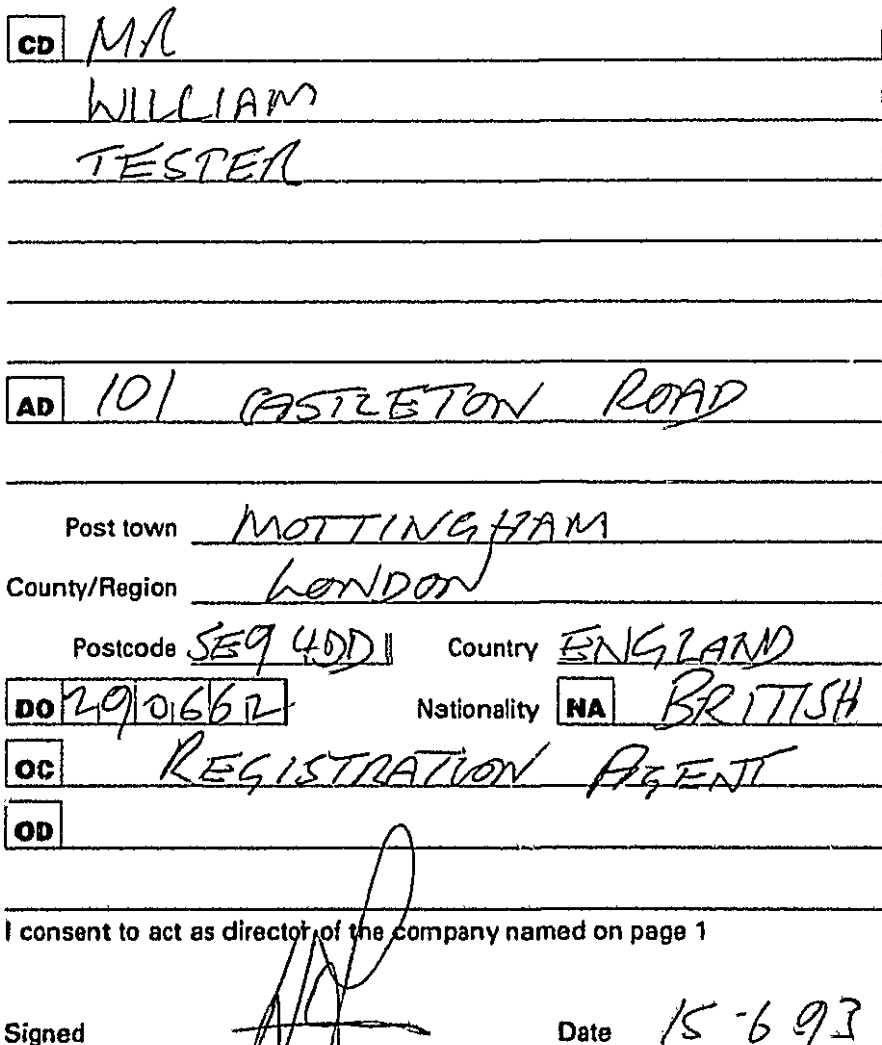 CD MR
WILLIAM
TESTER
AD 101 CASTLETON ROAD
Post town MOTTINGHAM
County/Region LONDON
Postcode SE9 4DD Country ENGLAND
DO 290662 Nationality NA BRITISH
OC REGISTRATION AGENT
OD
I consent to act as director of the company named on page 1
Signed Date 15-6 93